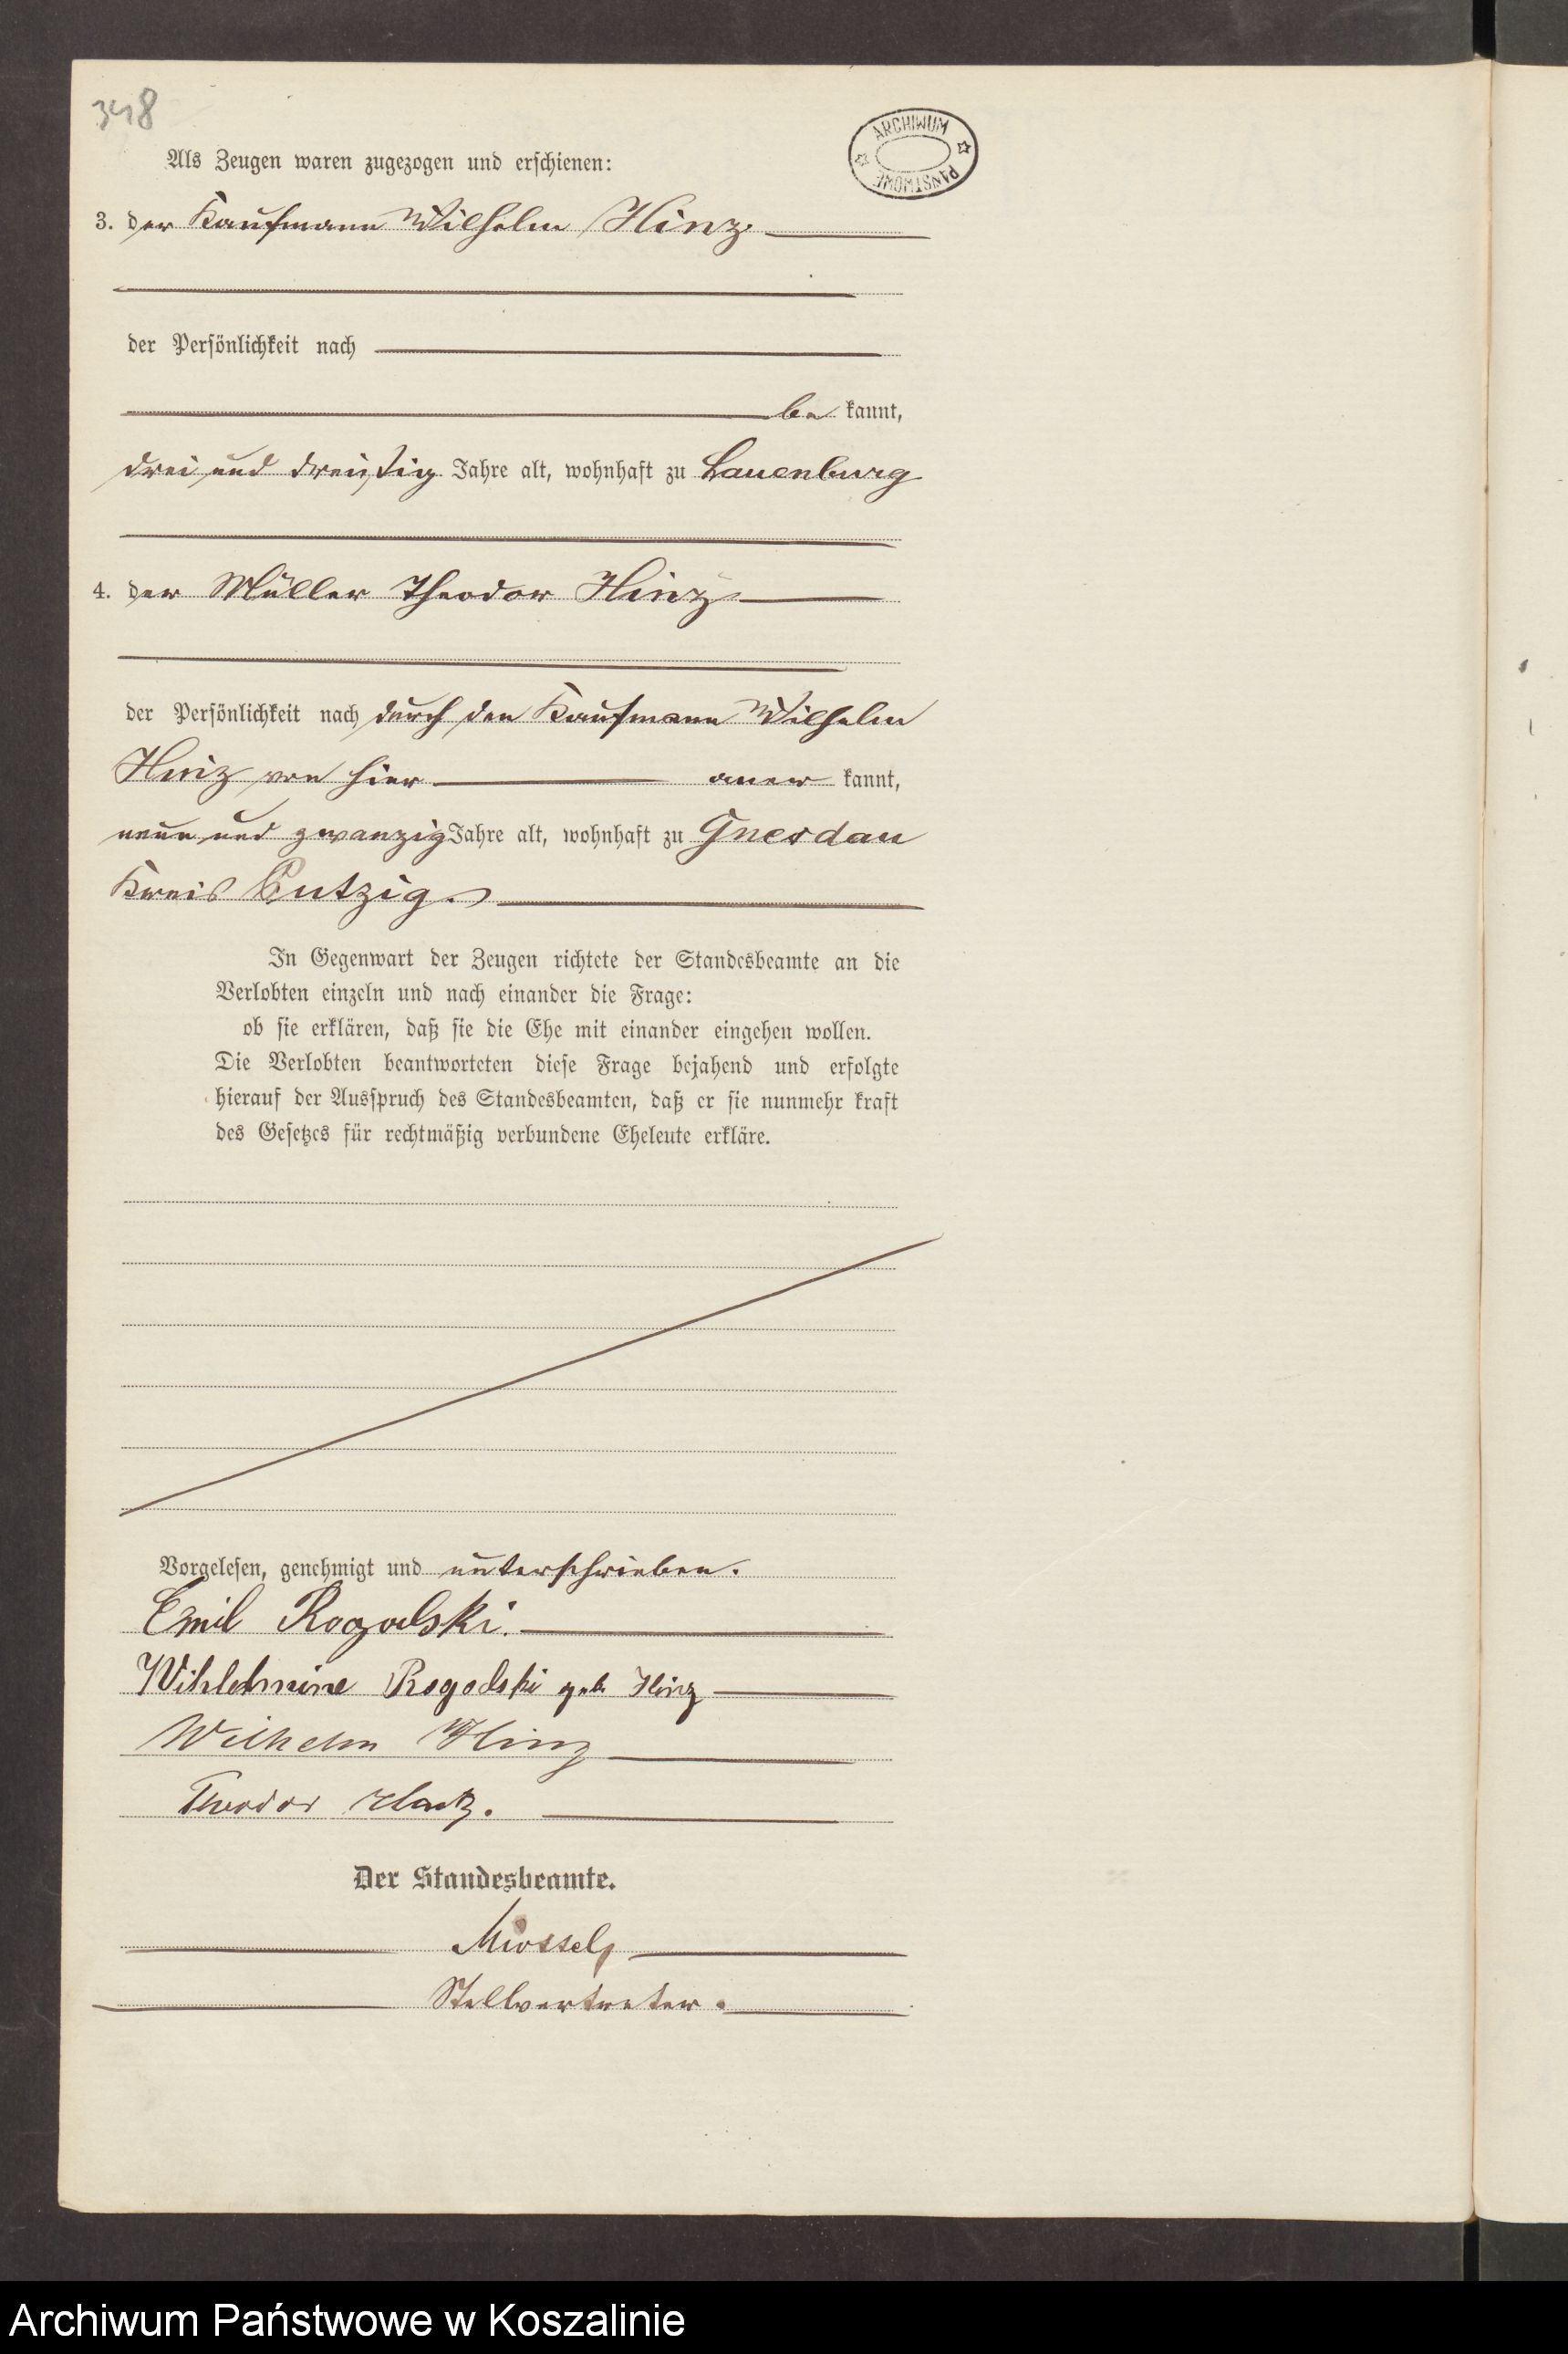 348
ARCHIWUM PAŃSTWOWE
Als Zeugen waren zugezogen und erschienen:
3. der Kaufmann Wilhelm Hinz
der Persönlichkeit nach
be kannt,
drei und dreißig Jahre alt, wohnhaft zu Lauenburg
4. der Müller Theodor Hinz
der Persönlichkeit nach durch den Kaufmann Wilhelm
Hinz von hier aner kannt,
neun und zwanzig Jahre alt, wohnhaft zu Gnesdau
Kreis Putzig.
In Gegenwart der Zeugen richtete der Standesbeamte an die
Verlobten einzeln und nach einander die Frage:
ob sie erklären, daß sie die Ehe mit einander eingehen wollen.
Die Verlobten beantworteten diese Frage bejahend und erfolgte
hierauf der Ausspruch des Standesbeamten, daß er sie nunmehr kraft
des Gesetzes für rechtmäßig verbundene Eheleute erkläre.
Vorgelesen, genehmigt und unterschrieben.
Emil Rogalski.
Rogalski geb. Hinz
Wilhelm Hinz
Theodor
Der Standesbeamte.
Stellvertreter.
Archiwum Państwowe w Koszalinie